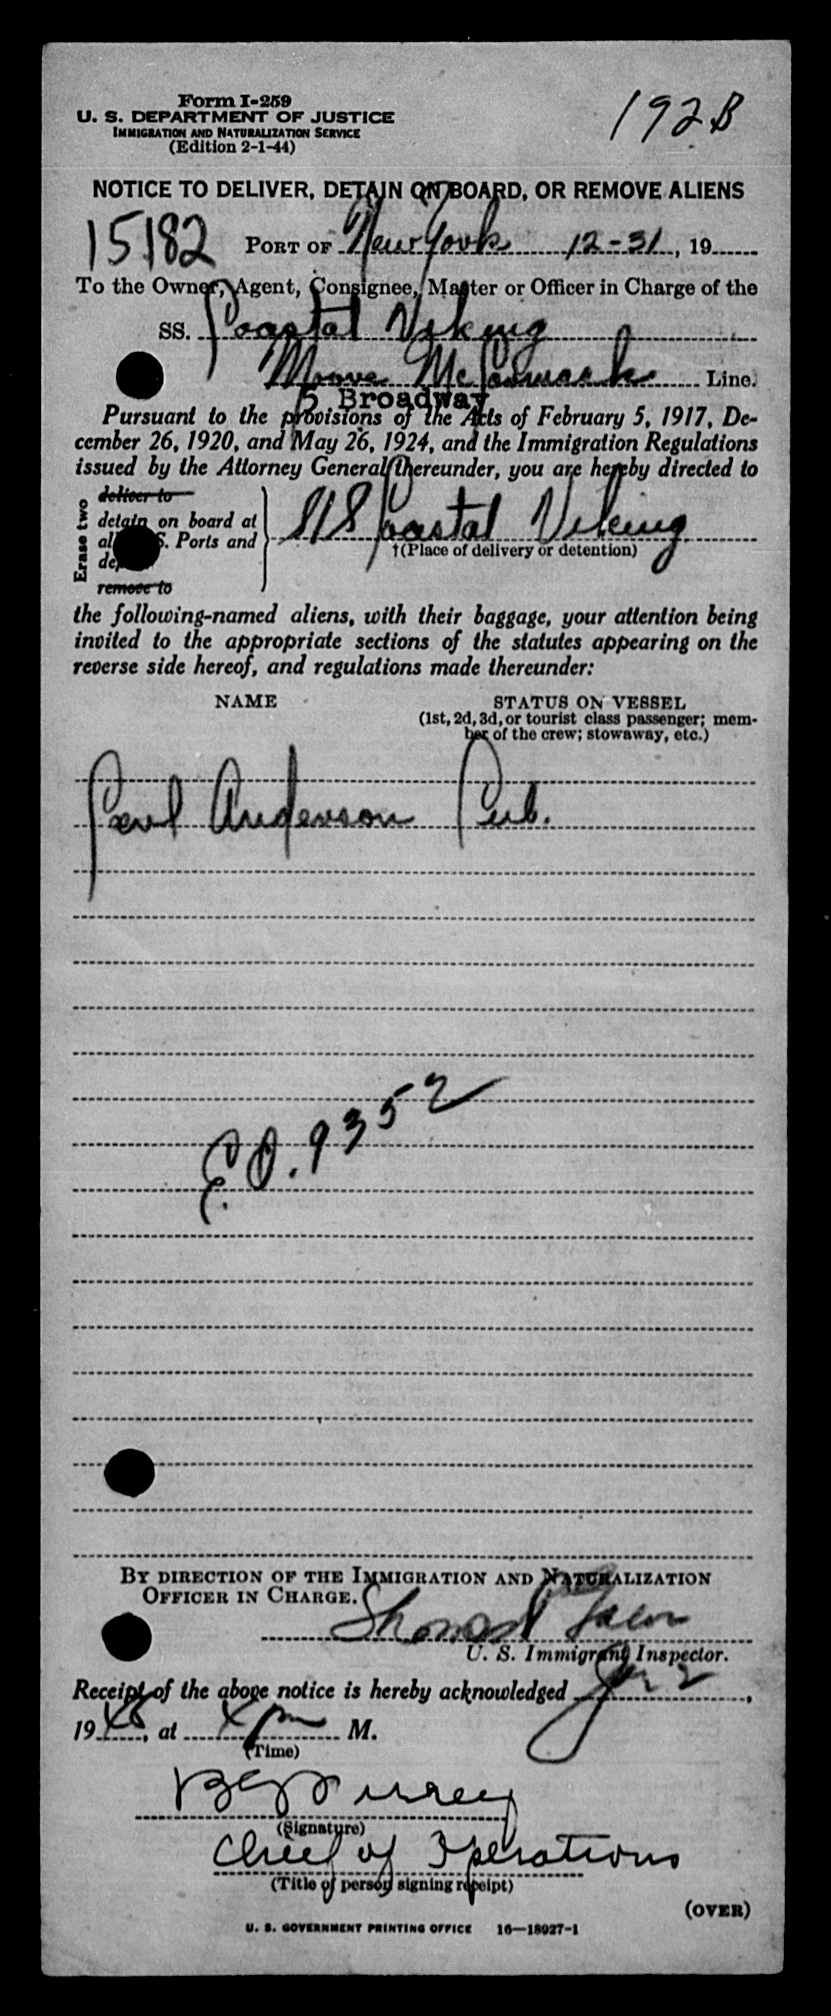 Form I-259
U. S. DEPARTMENT OF JUSTICE
IMMIGRATION AND NATURALIZATION SERVICE
(Edition 2-1-44)
192B
NOTICE TO DELIVER, DETAIN ON BOARD, OR REMOVE ALIENS
15182 PORT OF New York 12-31, 19
To the Owner, Agent, Consignee, Master or Officer in Charge of the
SS. Coastal Viking
Moore McCormack Line.
5 Broadway
Pursuant to the provisions of the Acts of February 5, 1917, De-
cember 26, 1920, and May 26, 1924, and the Immigration Regulations
issued by the Attorney General thereunder, you are hereby directed to
Erase two
deliver to
detain on board at
all U. S. Ports and
deport
remove to
SS Coastal Viking
†(Place of delivery or detention)
the following-named aliens, with their baggage, your attention being
invited to the appropriate sections of the statutes appearing on the
reverse side hereof, and regulations made thereunder:
NAME STATUS ON VESSEL
(1st, 2d, 3d, or tourist class passenger; mem-
ber of the crew; stowaway, etc.)
Anderson
E.O. 9352
BY DIRECTION OF THE IMMIGRATION AND NATURALIZATION
OFFICER IN CHARGE.
Thomas
U. S. Immigrant Inspector.
Receipt of the above notice is hereby acknowledged Jan 2,
19, at 4 pm M.
(Time)
(Signature)
Chief of Operations
(Title of person signing receipt)
(OVER)
U. S. GOVERNMENT PRINTING OFFICE 16—18927-1